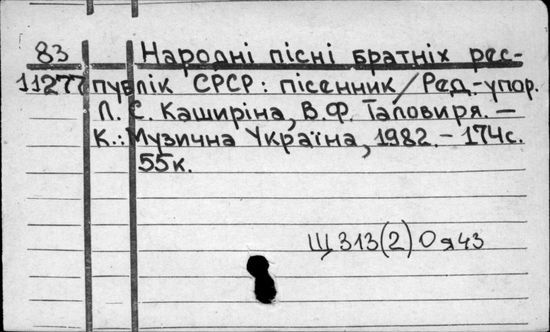 83 Народні пісні братніх рес-
11277 публік СРСР: пісенник/Ред.-упор.
Л. Є. Каширіна, В.Ф. Таловиря. —
К.: Музична Україна, 1982. – 174с.
55к.
Щ313(2)Оя43